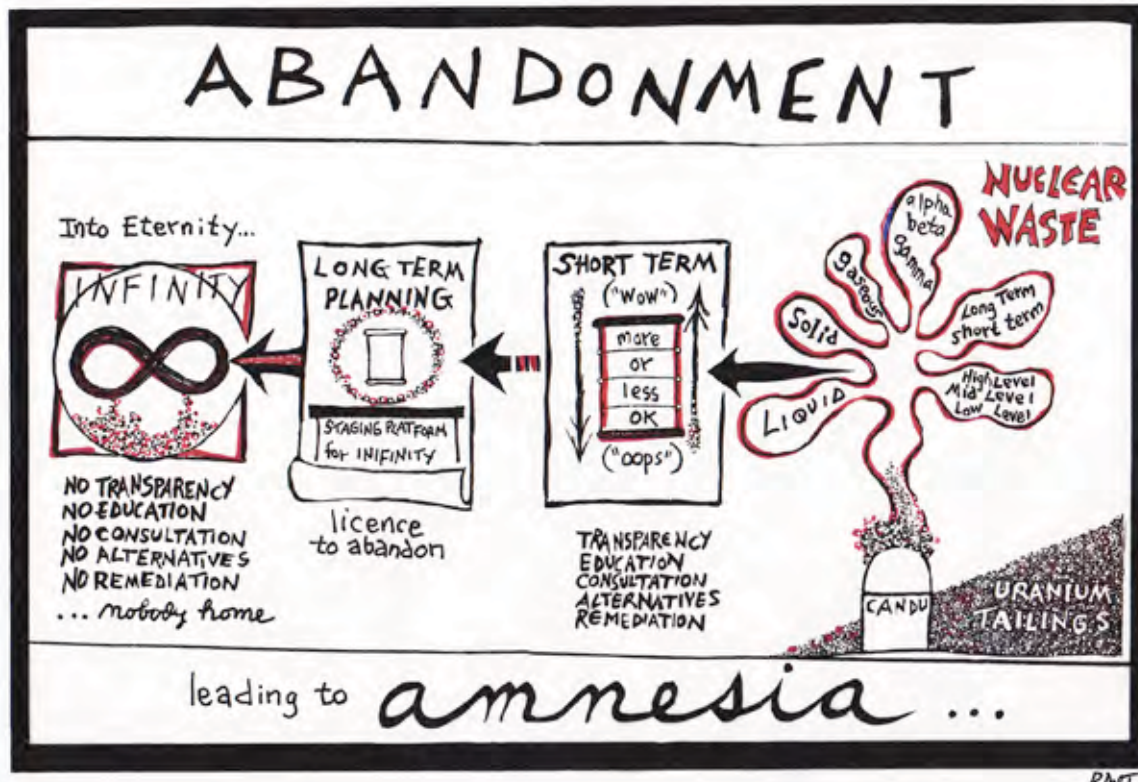 ABANDONMENT
NUCLEAR
WASTE
Into Eternity...
INFINITY
NO TRANSPARENCY
NO EDUCATION
NO CONSULTATION
NO ALTERNATIVES
NO REMEDIATION
... nobody home
LONG TERM
PLANNING
STAGING PLATFORM
for INIFINITY
licence
to abandon
SHORT TERM
("WOW")
more
or
less
OK
("OOPS")
TRANSPARENCY
EDUCATION
CONSULTATION
ALTERNATIVES
REMEDIATION
alpha
beta
gamma
gaseous
Solid
LIQUID
Long Term
short term
High Level
Mid Level
Low Level
CANDU
URANIUM
TAILINGS
leading to amnesia ...